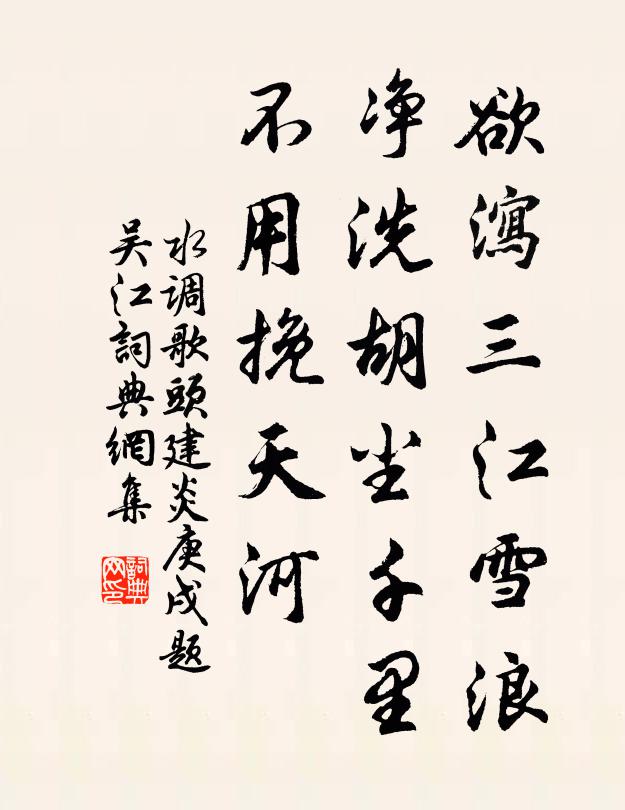 欲瀉三江雪浪
净洗胡尘千里
不用挽天河
水调歌頭建炎庚戌题
吴江詞典網集
詞典网印